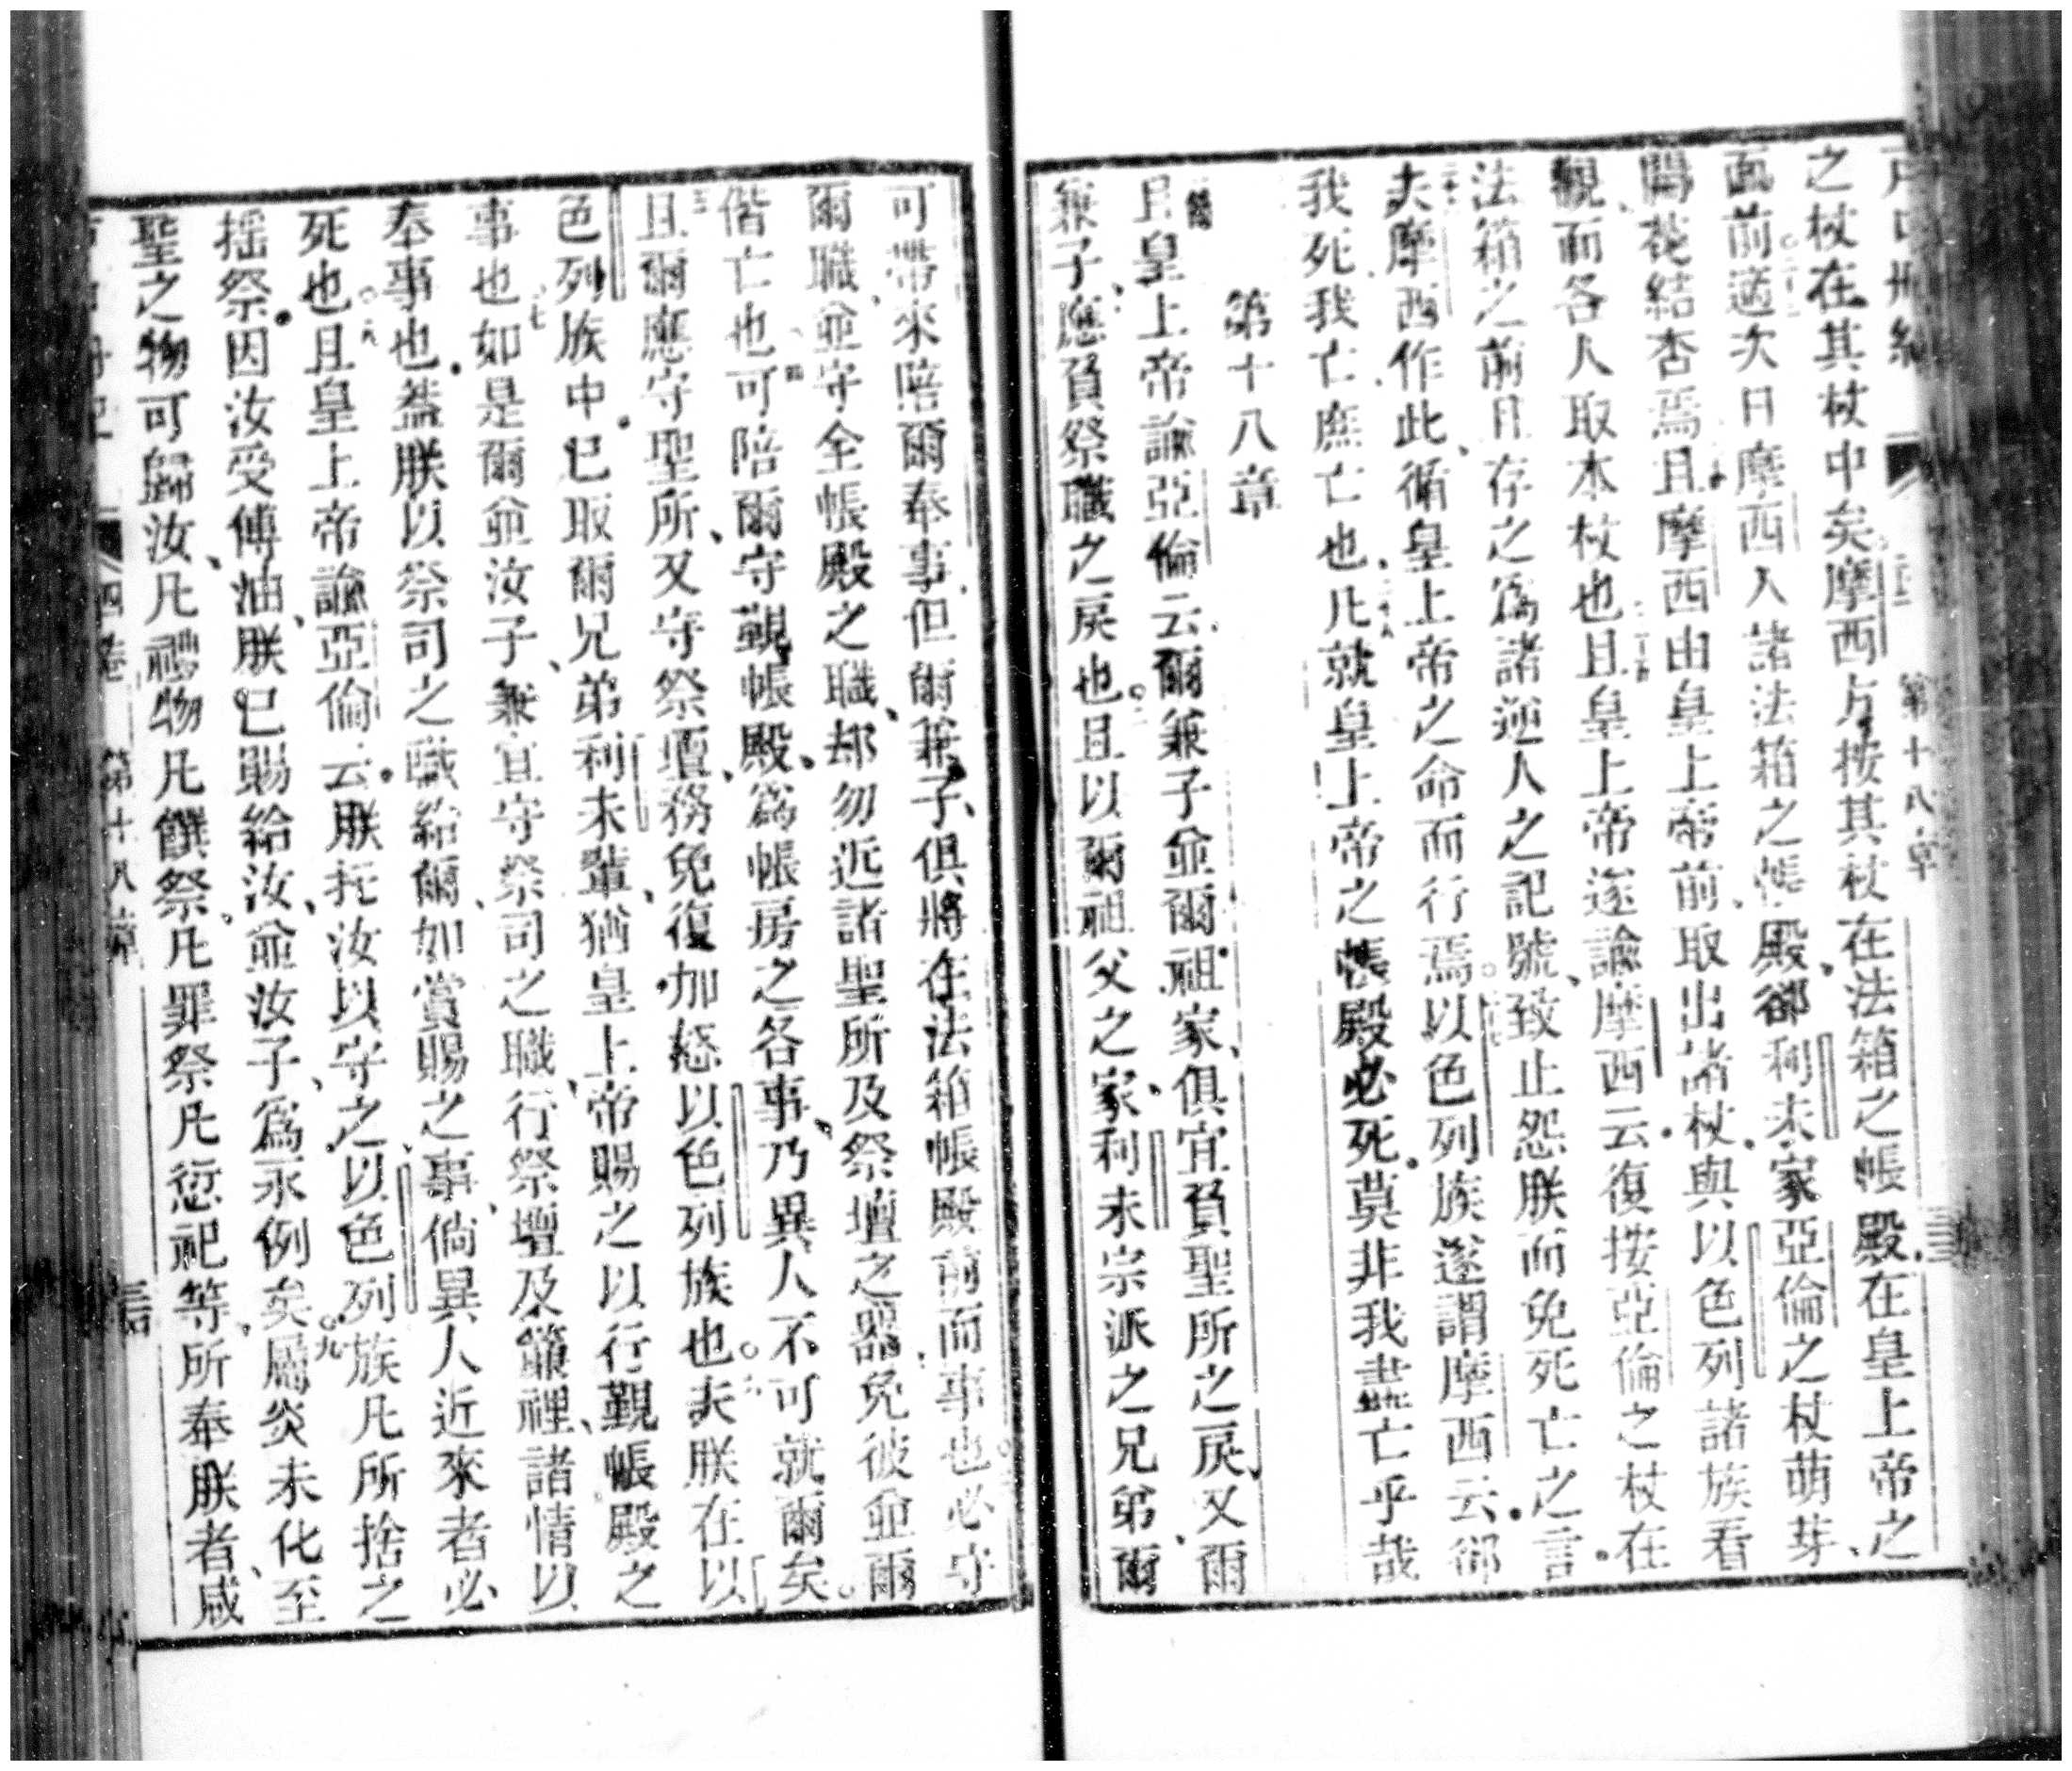 第十八章
之杖在其杖中矣摩西方按其杖在法箱之帳殿在皇上帝之
面前適次日摩西入諸法箱之帳殿卻利未家亞倫之杖萌芽
開花結杏焉且摩西由皇上帝前取出諸杖與以色列諸族看
觀而各人取本杖也且皇上帝遂諭摩西云復按亞倫之杖在
法箱之前且存之為諸逆人之記號致止怨朕而免死亡之言
夫摩西作此循皇上帝之命而行焉以色列族遂謂摩西云卻
我死我亡庶亡也凡就皇上帝之帳殿必死莫非我盡亡乎哉
第十八章
且皇上帝諭亞倫云爾兼子並爾祖家俱宜負聖所之戾又爾
兼子應負祭職之戾也且以爾祖父之家利未宗派之兄弟爾
可帶來陪爾奉事但爾兼子俱將在法箱帳殿前而事也必守
爾職並守全帳殿之職却勿近諸聖所及祭壇之器免彼並爾
偕亡也可陪爾守覲帳殿為帳房之各事乃異人不可就爾矣
且爾應守聖所又守祭壇務免復加怒以色列族也夫朕在以
色列族中已取爾兄弟利未輩猶皇上帝賜之以行覲帳殿之
事也如是爾並汝子兼宜守祭司之職行祭壇及簾裡諸情以
奉事也蓋朕以祭司之職給爾如賞賜之事倘異人近來者必
死也且皇上帝諭亞倫云朕托汝以守之以色列族凡所捨之
搖祭因汝受傅油朕已賜給汝並汝子為永例矣屬炎未化至
聖之物可歸汝凡禮物凡饌祭凡罪祭凡愆祀等所奉朕者咸
四卷 第十八章